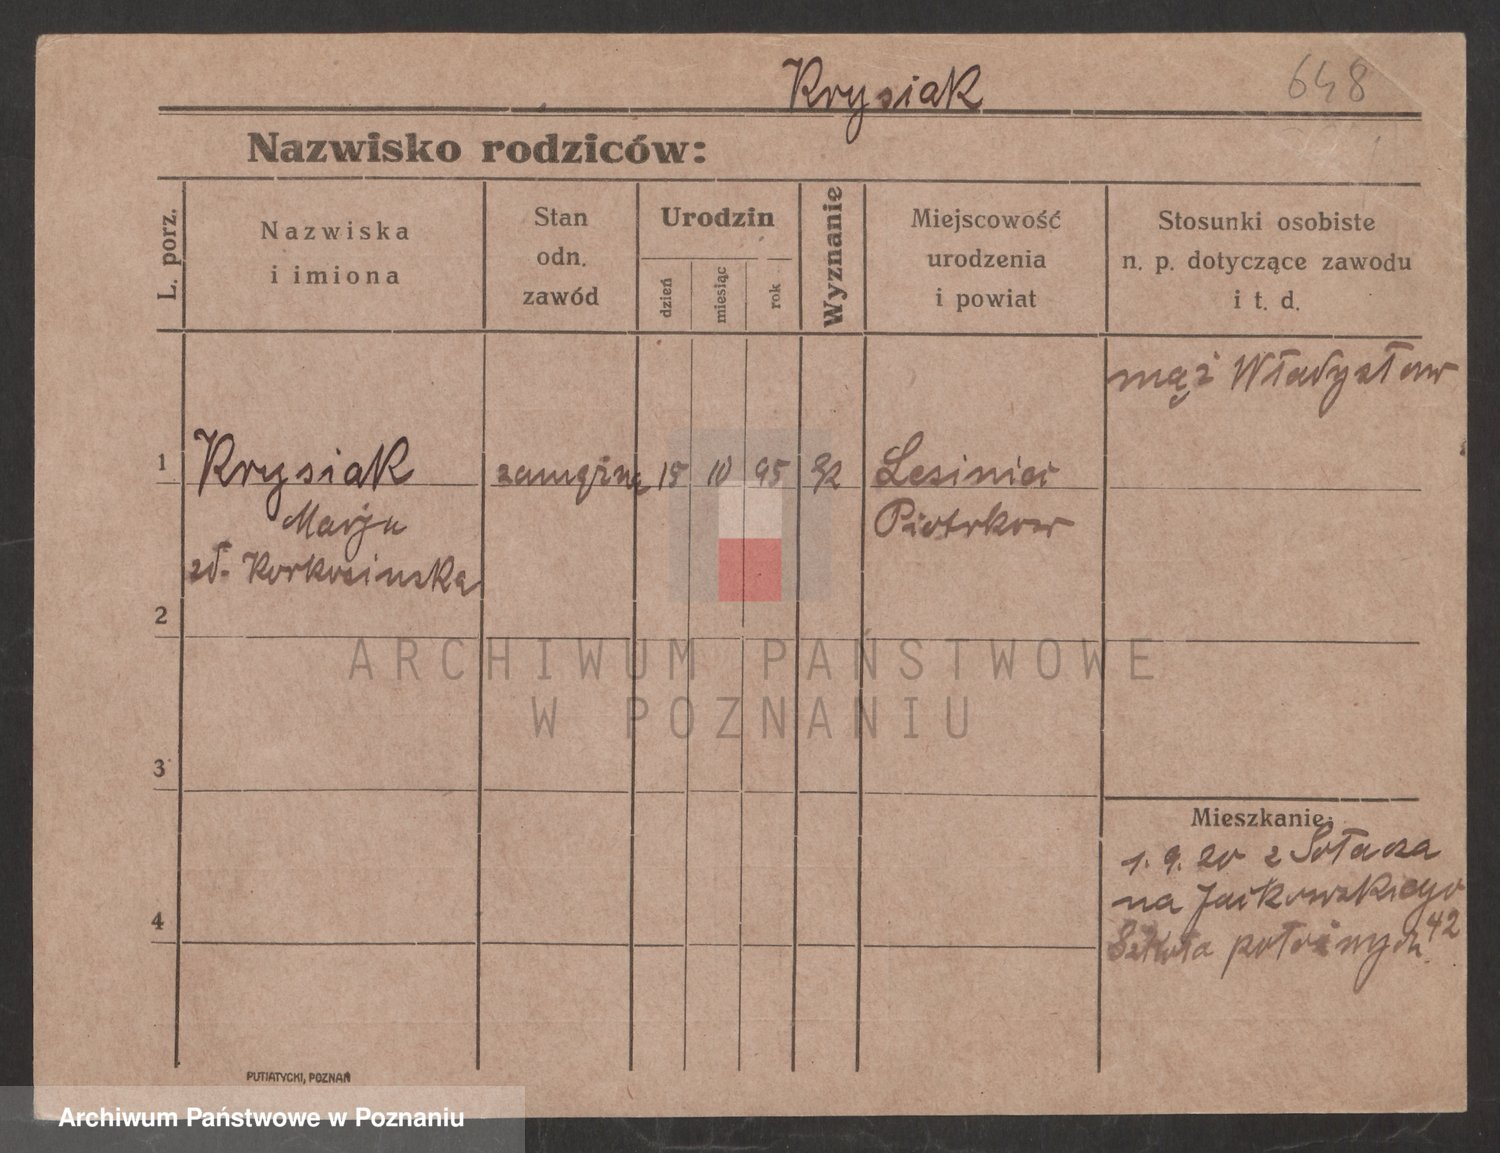 Krysiak
648
Nazwisko rodziców:
L. porz.
Nazwiska
i imiona
Stan
odn.
zawód
Urodzin
dzień
miesiąc
rok
Wyznanie
Miejscowość
urodzenia
i powiat
Stosunki osobiste
n. p. dotyczące zawodu
i t. d.
mąż Władysław
1 Krysiak zamężna 15 10 95
Marja Piotrkow
zd.
2
ARCHIWUM PAŃSTWOWE
W POZNANIU
3
Mieszkanie:
1. 9. 20 z Sołacza
na Jackowskiego
42
Szkoła położnych
4
PUTIATYCKI, POZNAŃ
Archiwum Państwowe w Poznaniu